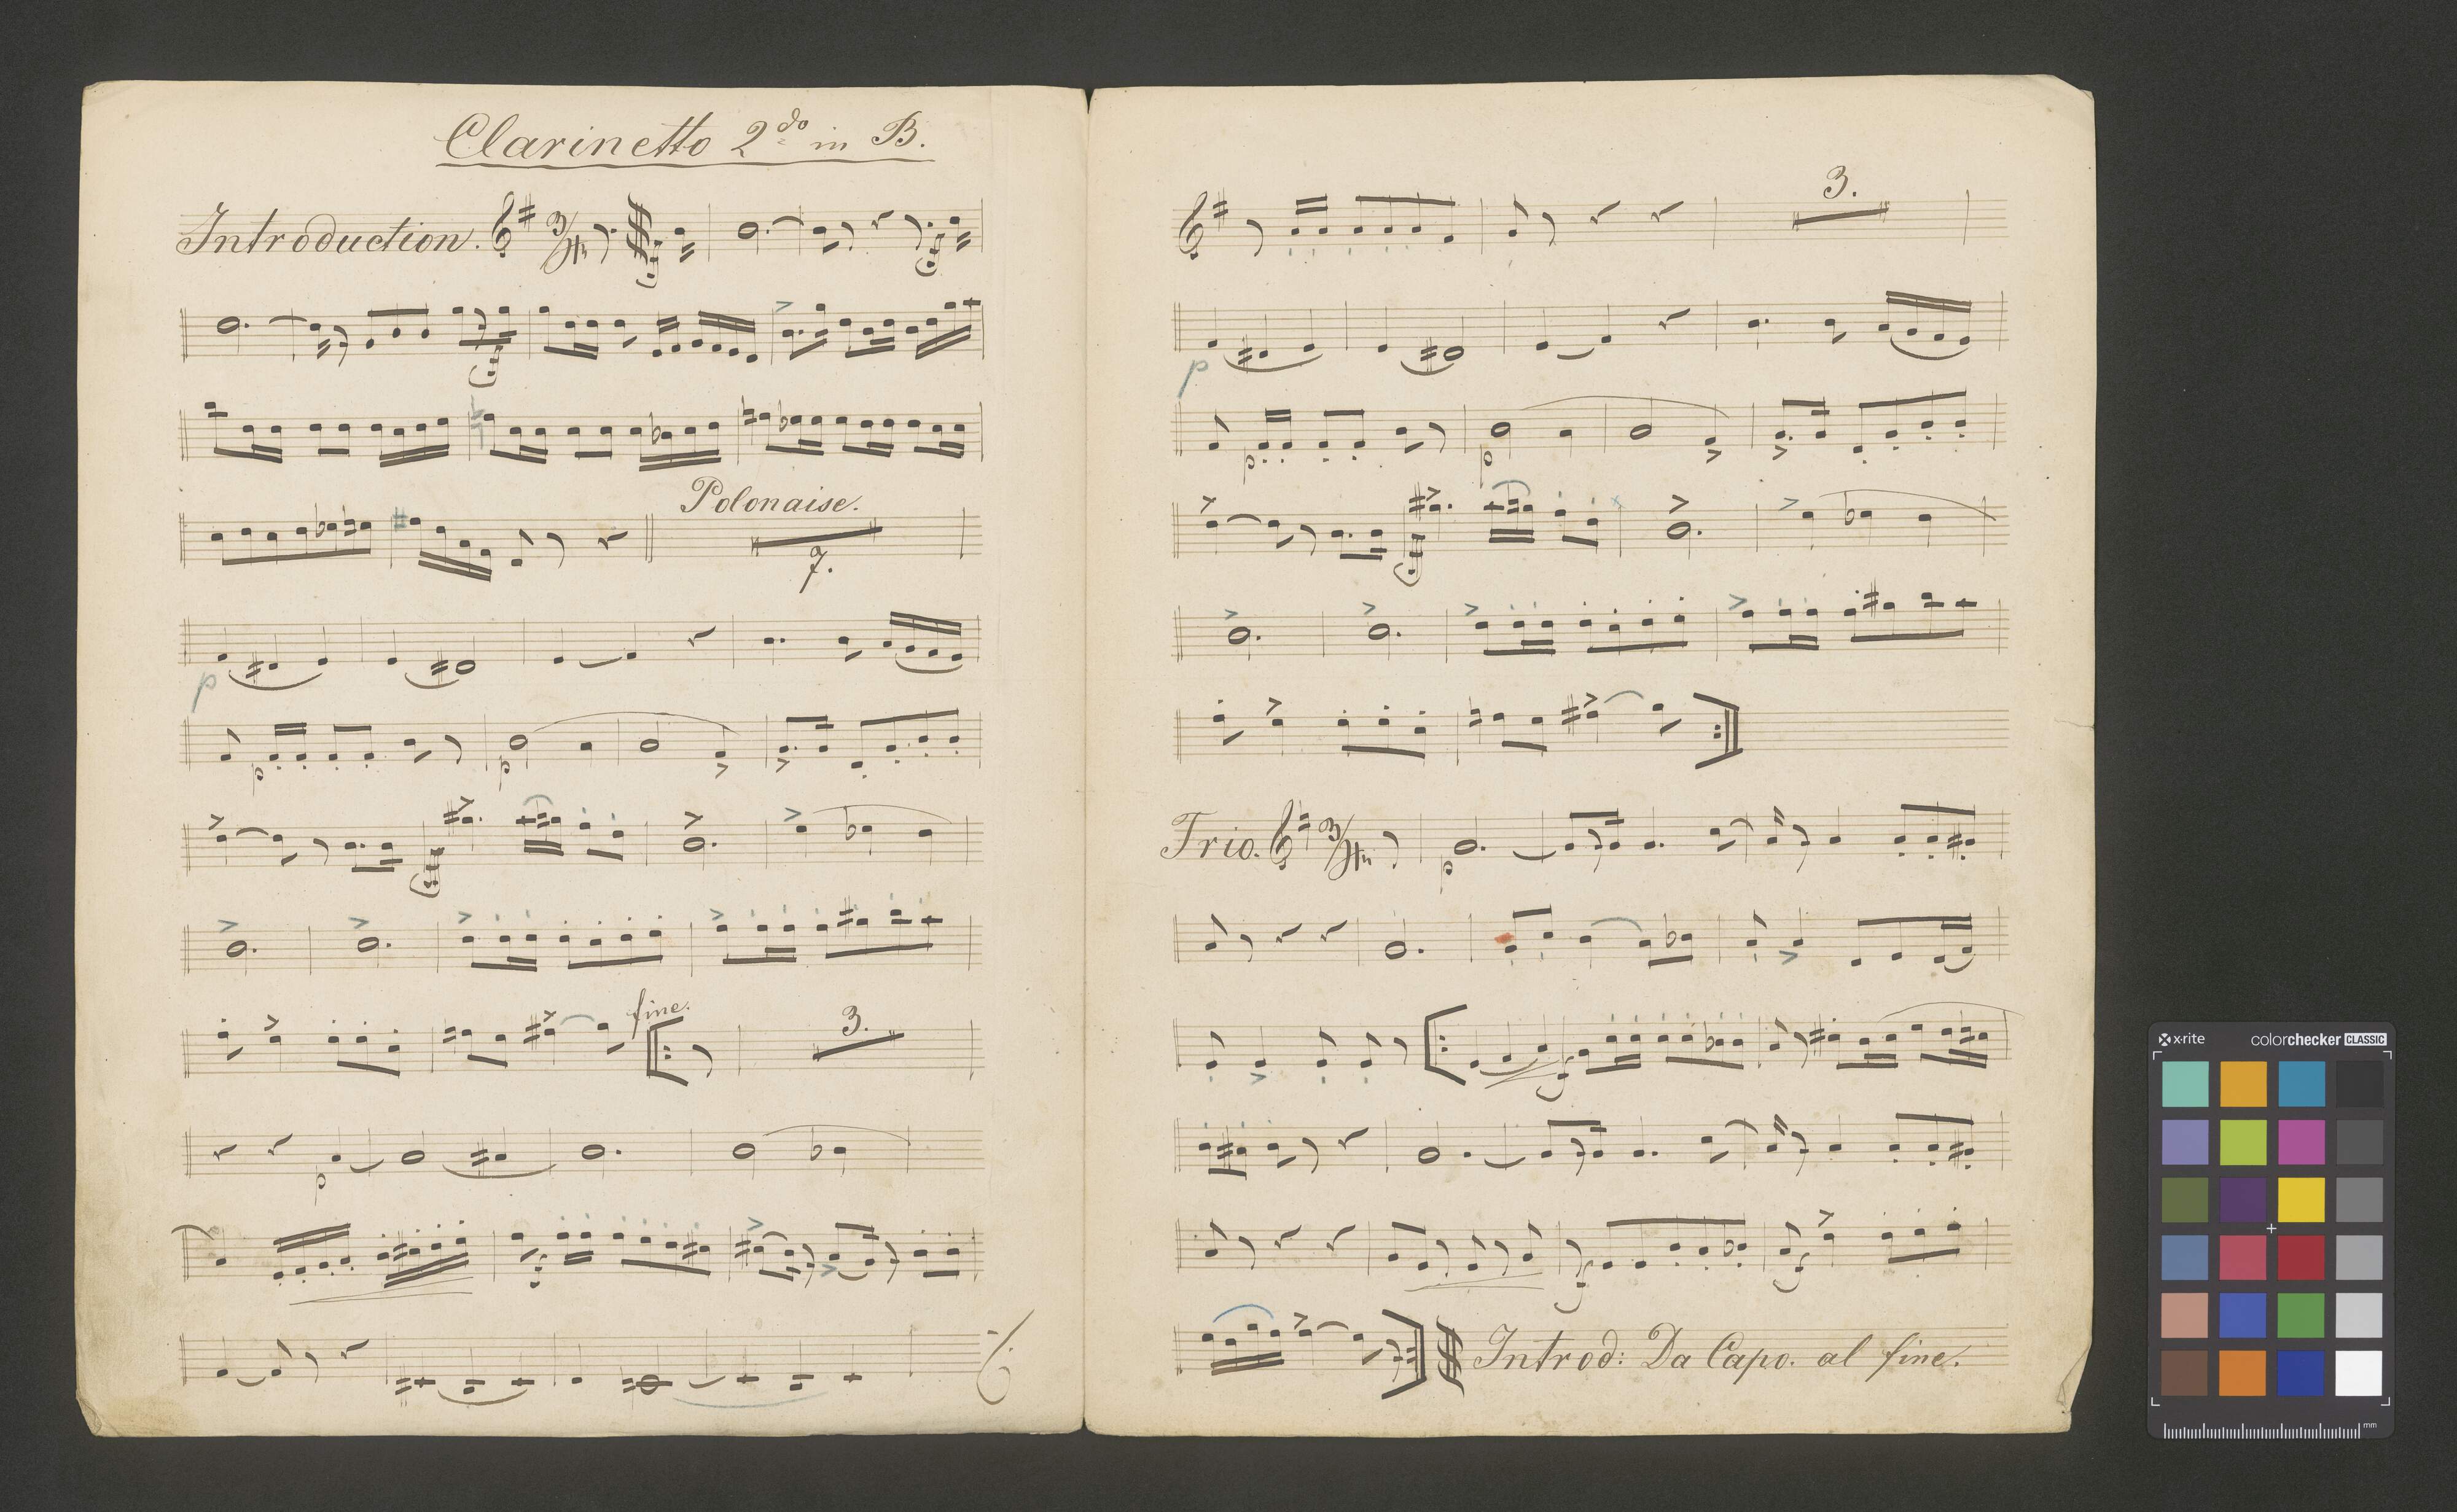 Clarinetto 2do in B.
Introduction. 3/4
Polonaise.
7.
p
p p
fine. 3.
p
3.
p
p p
Trio. 3/4 p
Introd: Da Capo. al fine.
x-rite colorchecker CLASSIC
mm